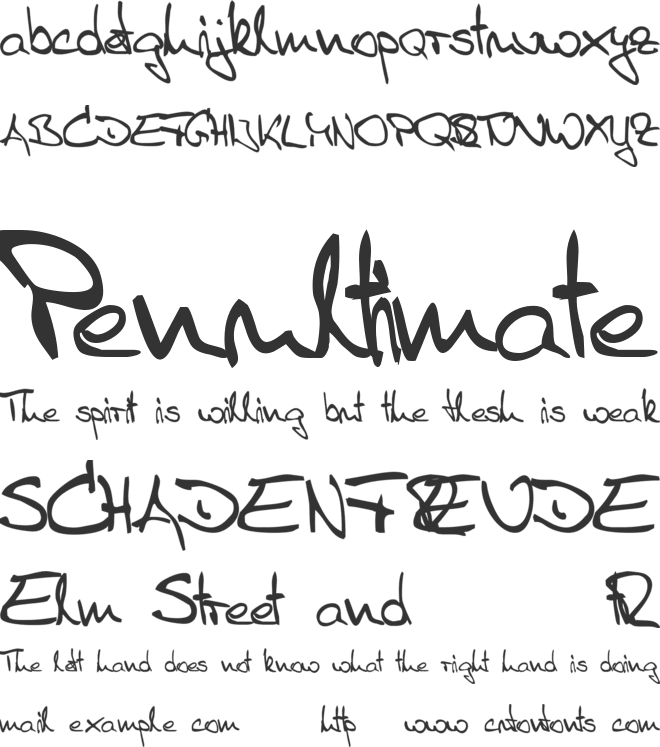 abcdefghijklmnopqrstuvwxyz
ABCDEFGHIJKLMNOPQRSTUVWXYZ
Penultimate
The spirit is willing but the flesh is weak
SCHADENFREUDE
Elm Street and
The left hand does not know what the right hand is doing
mail example com http www cntovfonts com